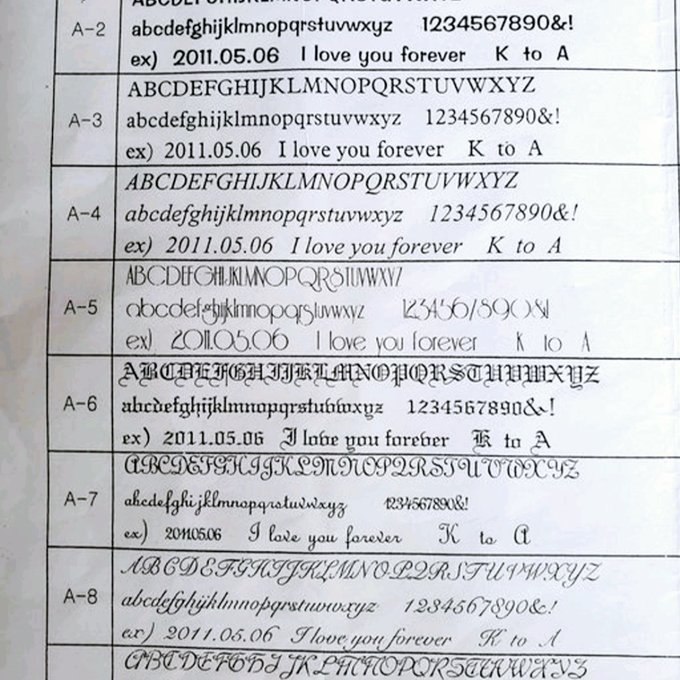 ABCDEFGHIJKLMNOPQRSTUVWXYZ
A-2
abcdefghijklmnopqrstuvwxyz 1234567890&!
ex) 2011.05.06 I love you forever K to A
ABCDEFGHIJKLMNOPQRSTUVWXYZ
A-3
abcdefghijklmnopqrstuvwxyz 1234567890&!
ex) 2011.05.06 I love you forever K to A
ABCDEFGHIJKLMNOPQRSTUVWXYZ
A-4
abcdefghijklmnopqrstuvwxyz 1234567890&!
ex) 2011.05.06 I love you forever K to A
ABCDEFGHIJKLMNOPQRSTUVWXYZ
A-5
abcdefghijklmnopqrstuvwxyz 1234567890&!
ex) 2011.05.06 I love you forever K to A
ABCDEFGHIJKLMNOPQRSTUVWXYZ
A-6
abcdefghijklmnopqrstuvwxyz 1234567890&!
ex) 2011.05.06 I love you forever K to A
ABCDEFGHIJKLMNOPQRSTUVWXYZ
A-7
abcdefghijklmnopqrstuvwxyz 1234567890&!
ex) 2011.05.06 I love you forever K to A
ABCDEFGHIJKLMNOPQRSTUVWXYZ
A-8
abcdefghijklmnopqrstuvwxyz 1234567890&!
ex) 2011.05.06 I love you forever K to A
ABCDEFGHIJKLMNOPQRSTUVWXYZ